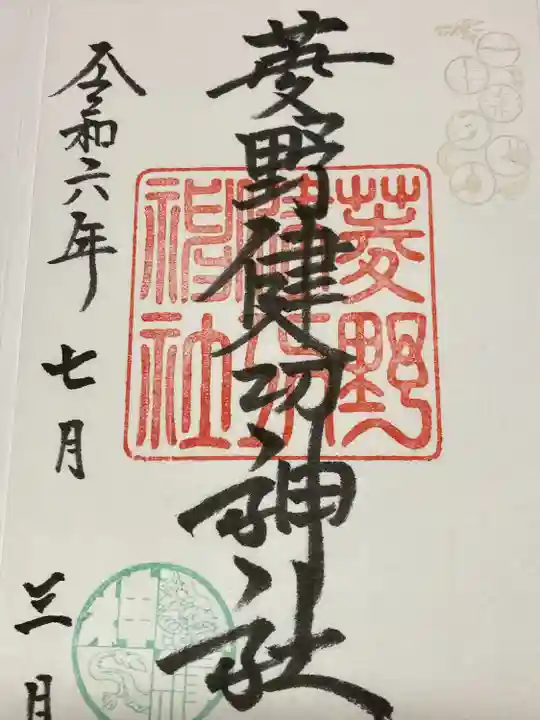 菱野健功神社
菱野
健功
神社
令和六年
七月
三日